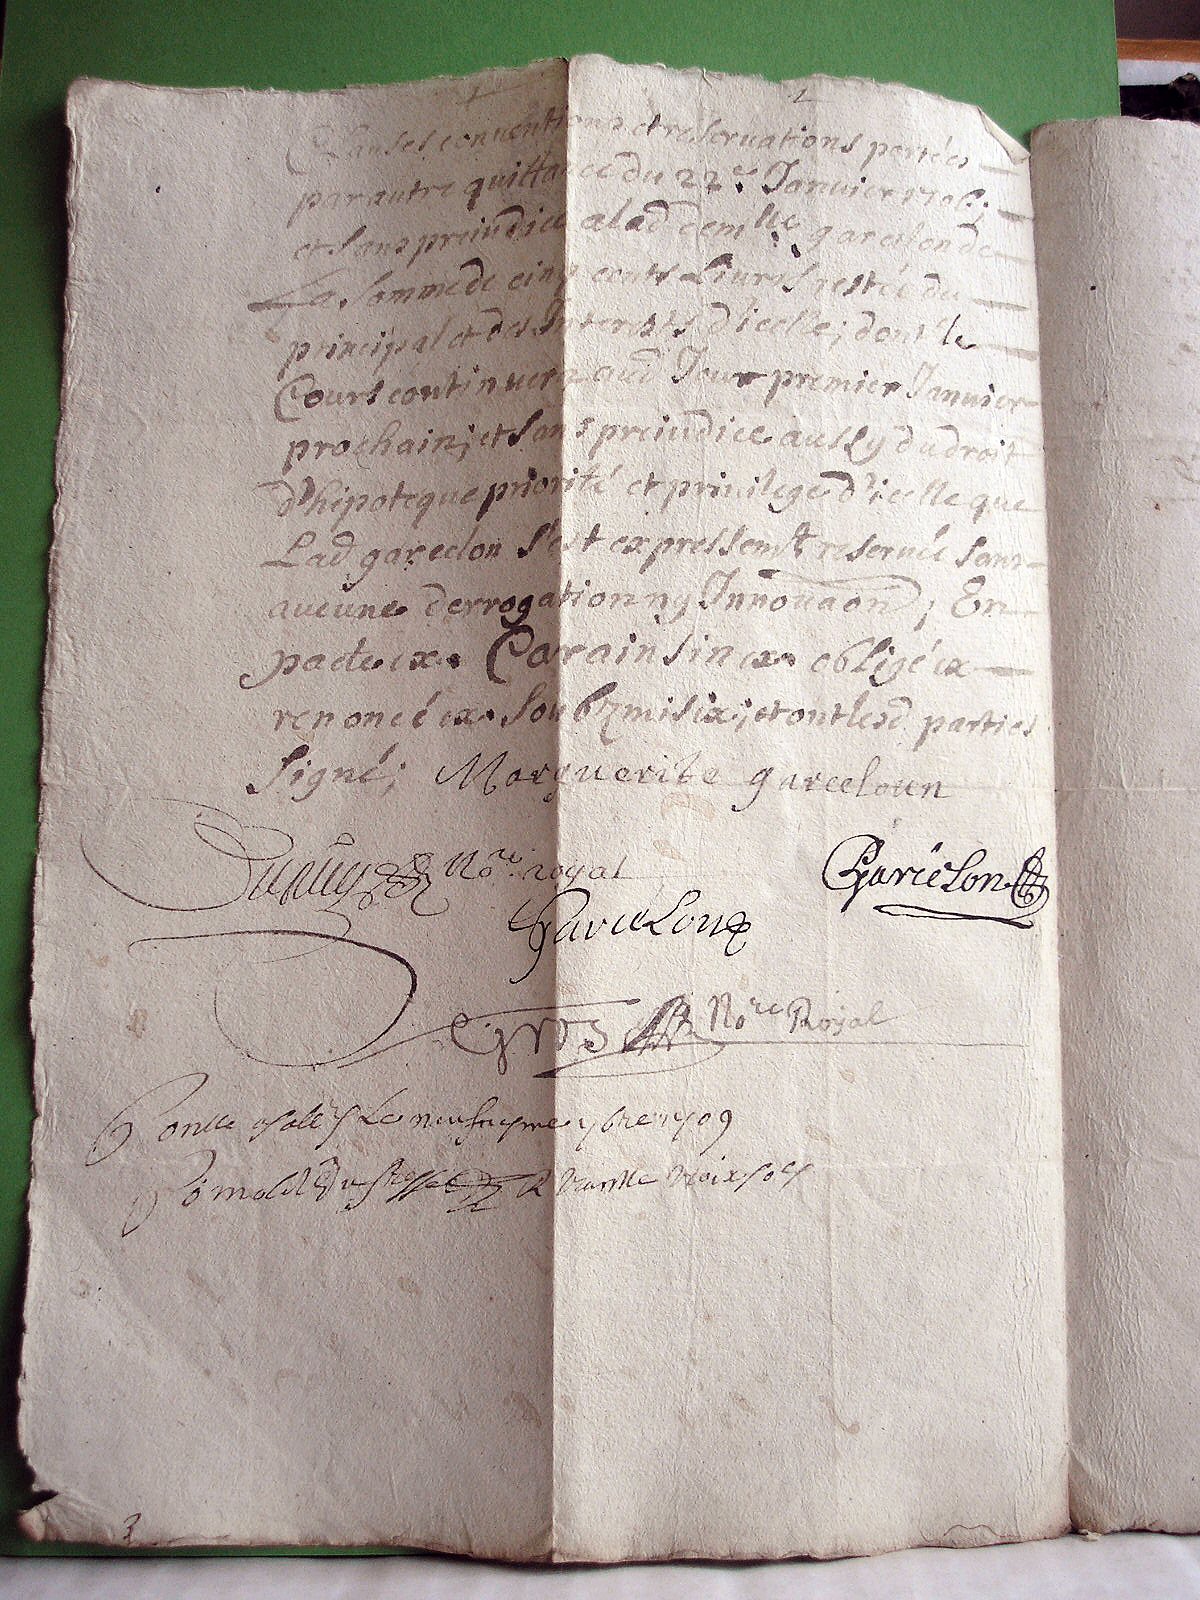 Clauses conuentions et reseruations portées
par autre quittance du 22e. Januier 1706;
et sans preiudice a lad demlle garcelon de
La somme de cinq cents Liures restée du
principal et des Interests d'icelle; dont le
Cours continuera aud Jour premier Januier
prochain; et sans preiudice aussy du droit
d'hipoteque priorité et priuilege d'icelle que
Lad garcelon s'est expressemt reseruée sans
aucune derrogation ny Innouaon; En
pacte &a. Car ainsin &a. obligé &a
renoncé &a. soubzmis &a; et ont lesd parties
signé; Marguerite garceloun
Dupuy Nore. royal
Garcelon
Garcelon
Gros Nore Royal
le 1709